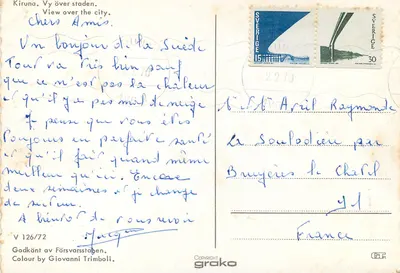 Kiruna. Vy över staden.
View over the city.
Chers Amis.
Un bonjour de la Suède
Tout va très bien sauf
que ce n'est pas la chaleur
et qu'il y a pas mal de neige
Je pense que vous êtes
toujours en parfaite santé
et qu'il fait quand même
meilleur qu'ici. Encore
deux semaines et je change
de secteur.
A bientôt de vous revoir
V 126/72
Godkänt av Försvarsstaben.
Colour by Giovanni Trimboli.
SVERIGE
15
SVERIGE
30
Avril Raymonde
La Soulodière par
Bruyères le Chatel
91
France
grako